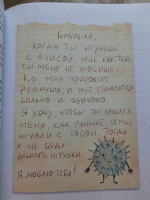 Бабушка,
когда ты играешь
с Алисой, мне кажется,
ты меня не любишь.
Ко мне приходит
Ревнуша, и мне становится
больно и одиноко.
Я хочу, чтобы ты любила
меня, как раньше, и мы
играли с тобой. Тогда
я не буду
забирать игрушки
Я люблю тебя!